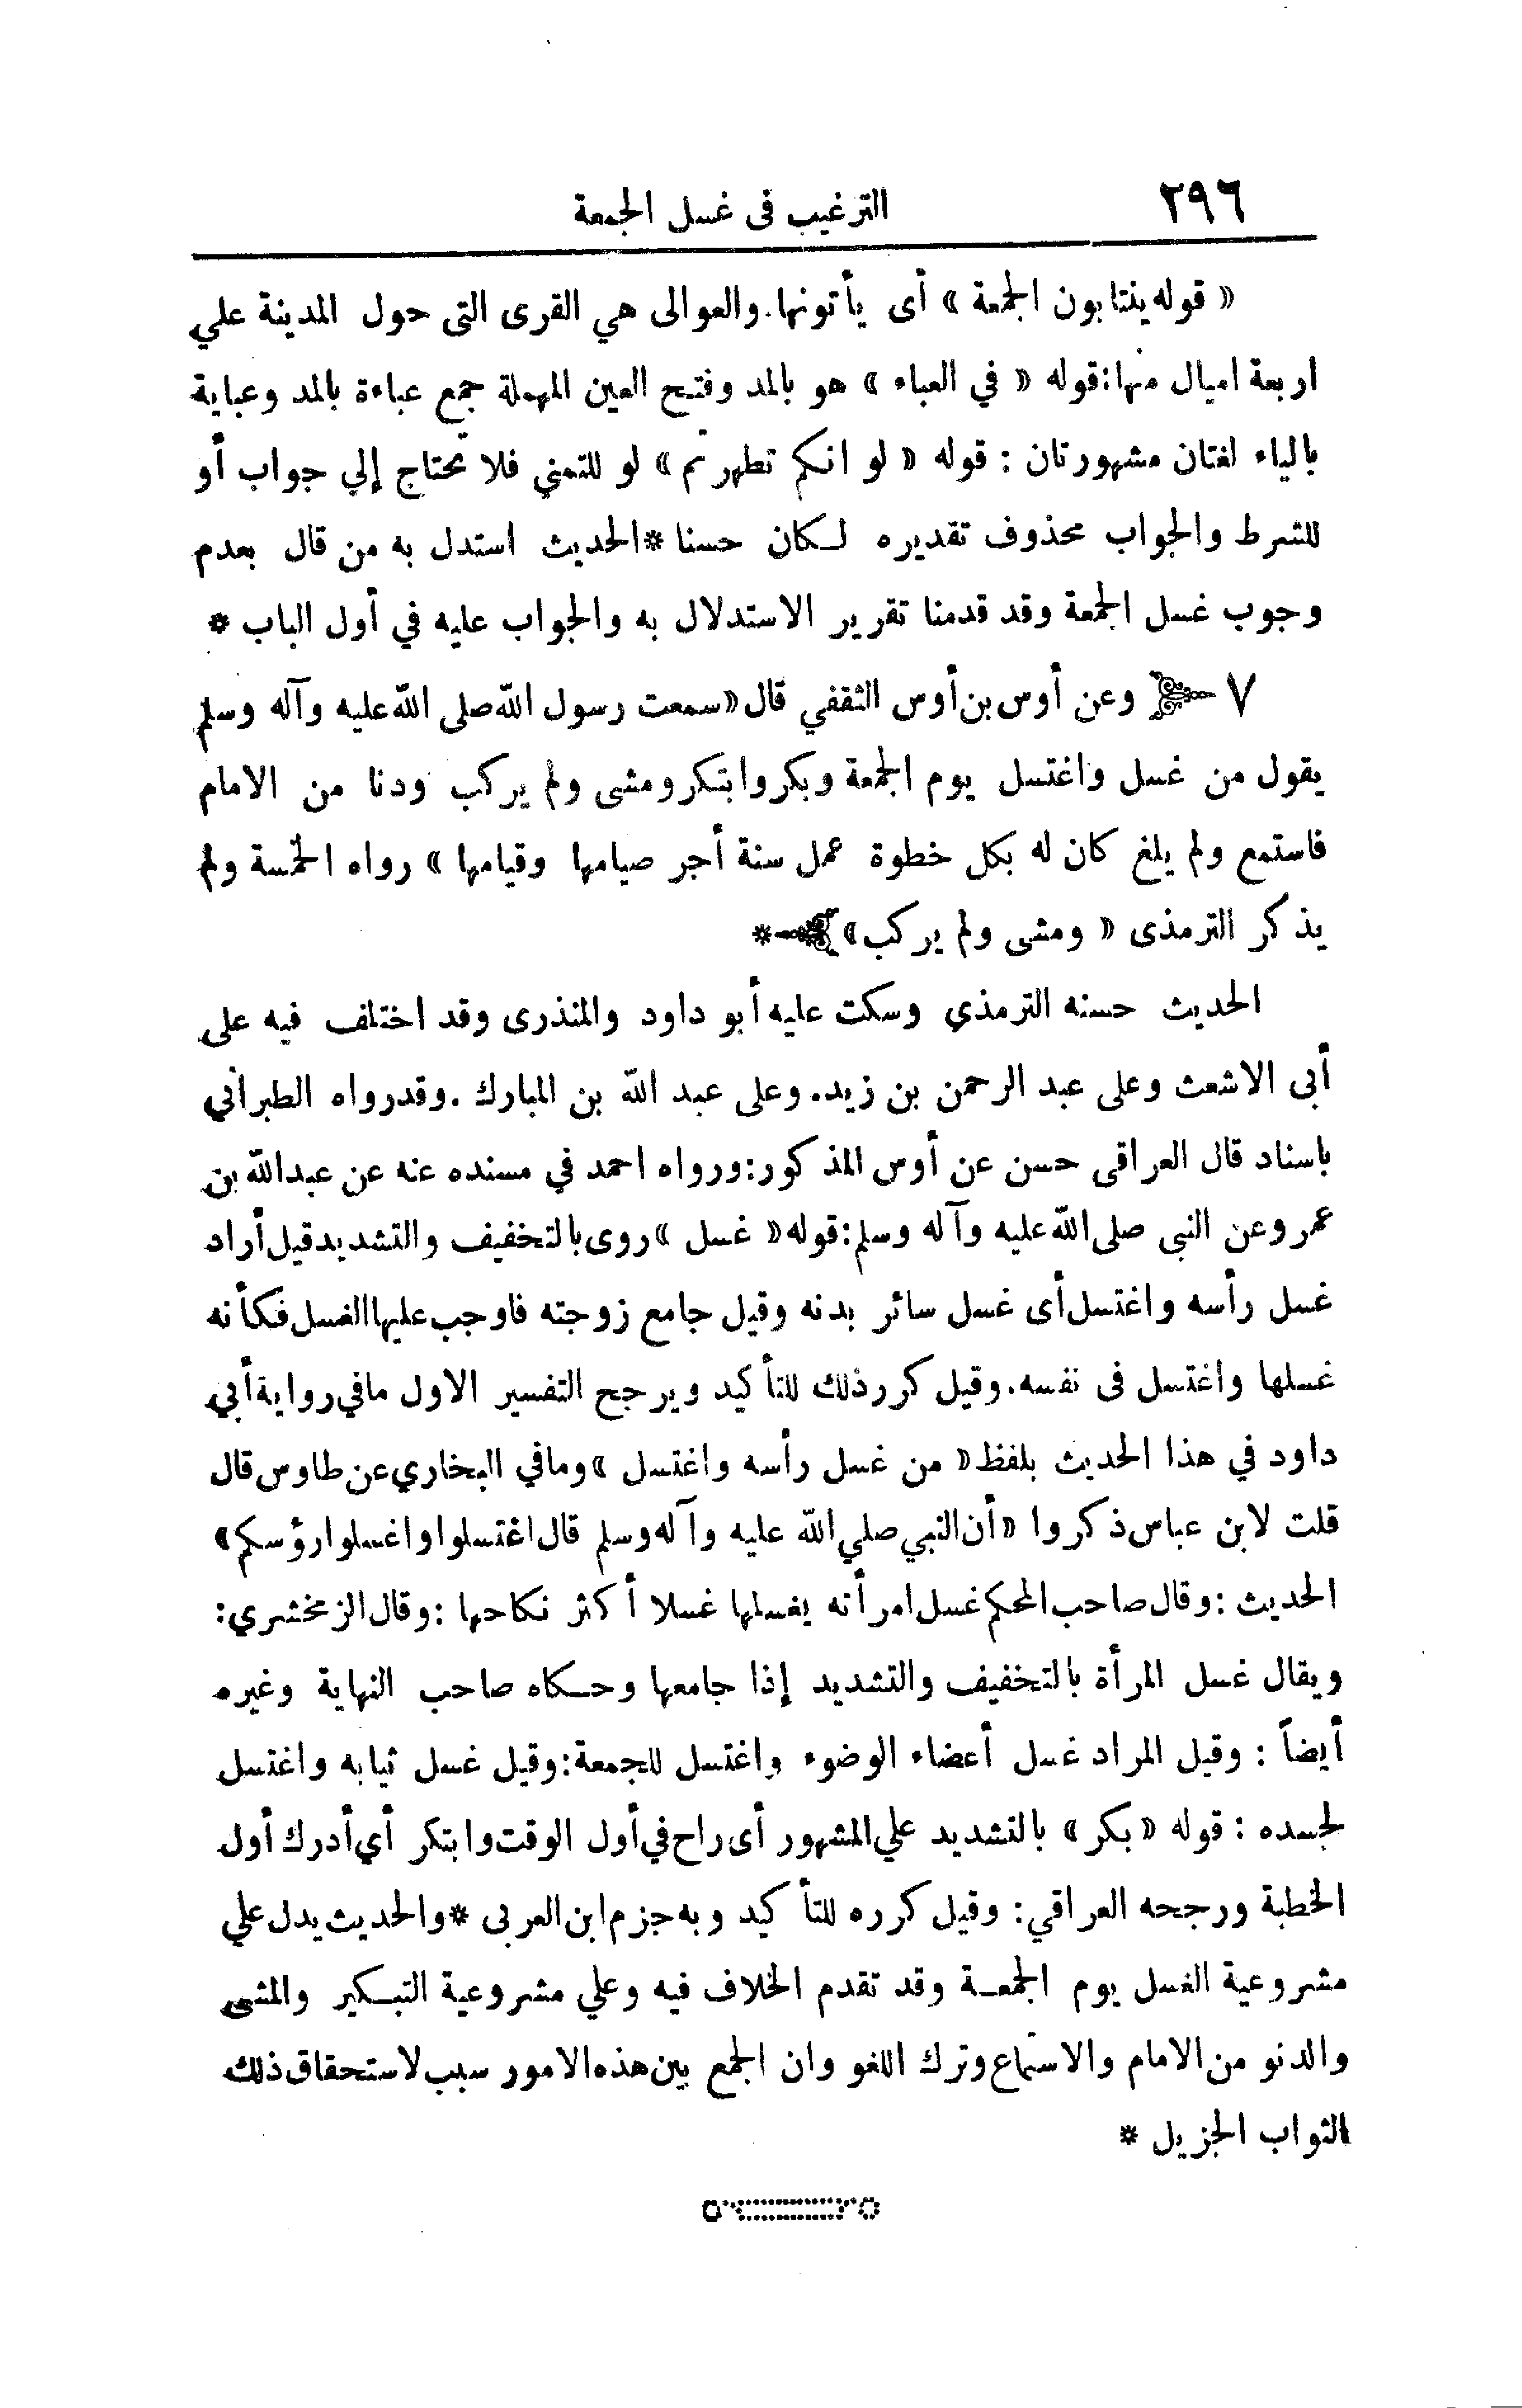 ٢٩٦ الترغيب فى غسل الجمعة
« قوله ينتابون الجمعة » أى يأتونها. والعوالى هي القرى التى حول المدينة علي
اربعة اميال منها: قوله « في العباء » هو بالمد وفتح العين المهملة جمع عباءة بالمد وعباية
بالياء لغتان مشهورتان : قوله « لو انكم تطهرتم » لو للتمني فلا تحتاج إلي جواب أو
للشرط والجواب محذوف تقديره لكان حسنا * الحديث استدل به من قال بعدم
وجوب غسل الجمعة وقد قدمنا تقرير الاستدلال به والجواب عليه في أول الباب *
٧ وعن أوس بن أوس الثقفي قال « سمعت رسول الله صلى الله عليه وآله وسلم
يقول من غسل واغتسل يوم الجمعة وبكر وابتكر ومشى ولم يركب ودنا من الامام
فاستمع ولم يلغ كان له بكل خطوة عمل سنة أجر صيامها وقيامها » رواه الخمسة ولم
يذكر الترمذى « ومشى ولم يركب » *
الحديث حسنه الترمذي وسكت عليه أبو داود والمنذرى وقد اختلف فيه على
أبى الاشعث وعلى عبد الرحمن بن زيد. وعلى عبد الله بن المبارك . وقدرواه الطبراني
باسناد قال العراقى حسن عن أوس المذكور: ورواه احمد في مسنده عنه عن عبدالله بن
عمر وعن النبى صلى الله عليه وآله وسلم: قوله « غسل » روى بالتخفيف والتشديد قيل أراد
غسل رأسه واغتسل أى غسل سائر بدنه وقيل جامع زوجته فاوجب عليها الغسل فكأنه
غسلها واغتسل فى نفسه. وقيل كرر ذلك للتأكيد ويرجح التفسير الاول مافي رواية أبي
داود في هذا الحديث بلفظ « من غسل رأسه واغتسل » ومافي البخاري عن طاوس قال
قلت لابن عباس ذكروا « أن النبي صلي الله عليه وآله وسلم قال اغتسلوا واغسلوا رؤسكم »
الحديث : وقال صاحب المحكم غسل امرأته يغسلها غسلا أكثر نكاحها : وقال الزمخشري :
ويقال غسل المرأة بالتخفيف والتشديد إذا جامعها وحكاه صاحب النهاية وغيره
أيضاً : وقيل المراد غسل أعضاء الوضوء واغتسل للجمعة: وقيل غسل ثيابه واغتسل
لجسده : قوله « بكر » بالتشديد علي المشهور أى راح في أول الوقت وابتكر أي أدرك أول
الخطبة ورجحه العراقي : وقيل كرره للتأكيد وبه جزم ابن العربى * والحديث يدل علي
مشروعية الغسل يوم الجمعة وقد تقدم الخلاف فيه وعلي مشروعية التبكير والمشى
والدنو من الامام والاستماع وترك اللغو وان الجمع بين هذه الامور سبب لاستحقاق ذلك
الثواب الجزيل *